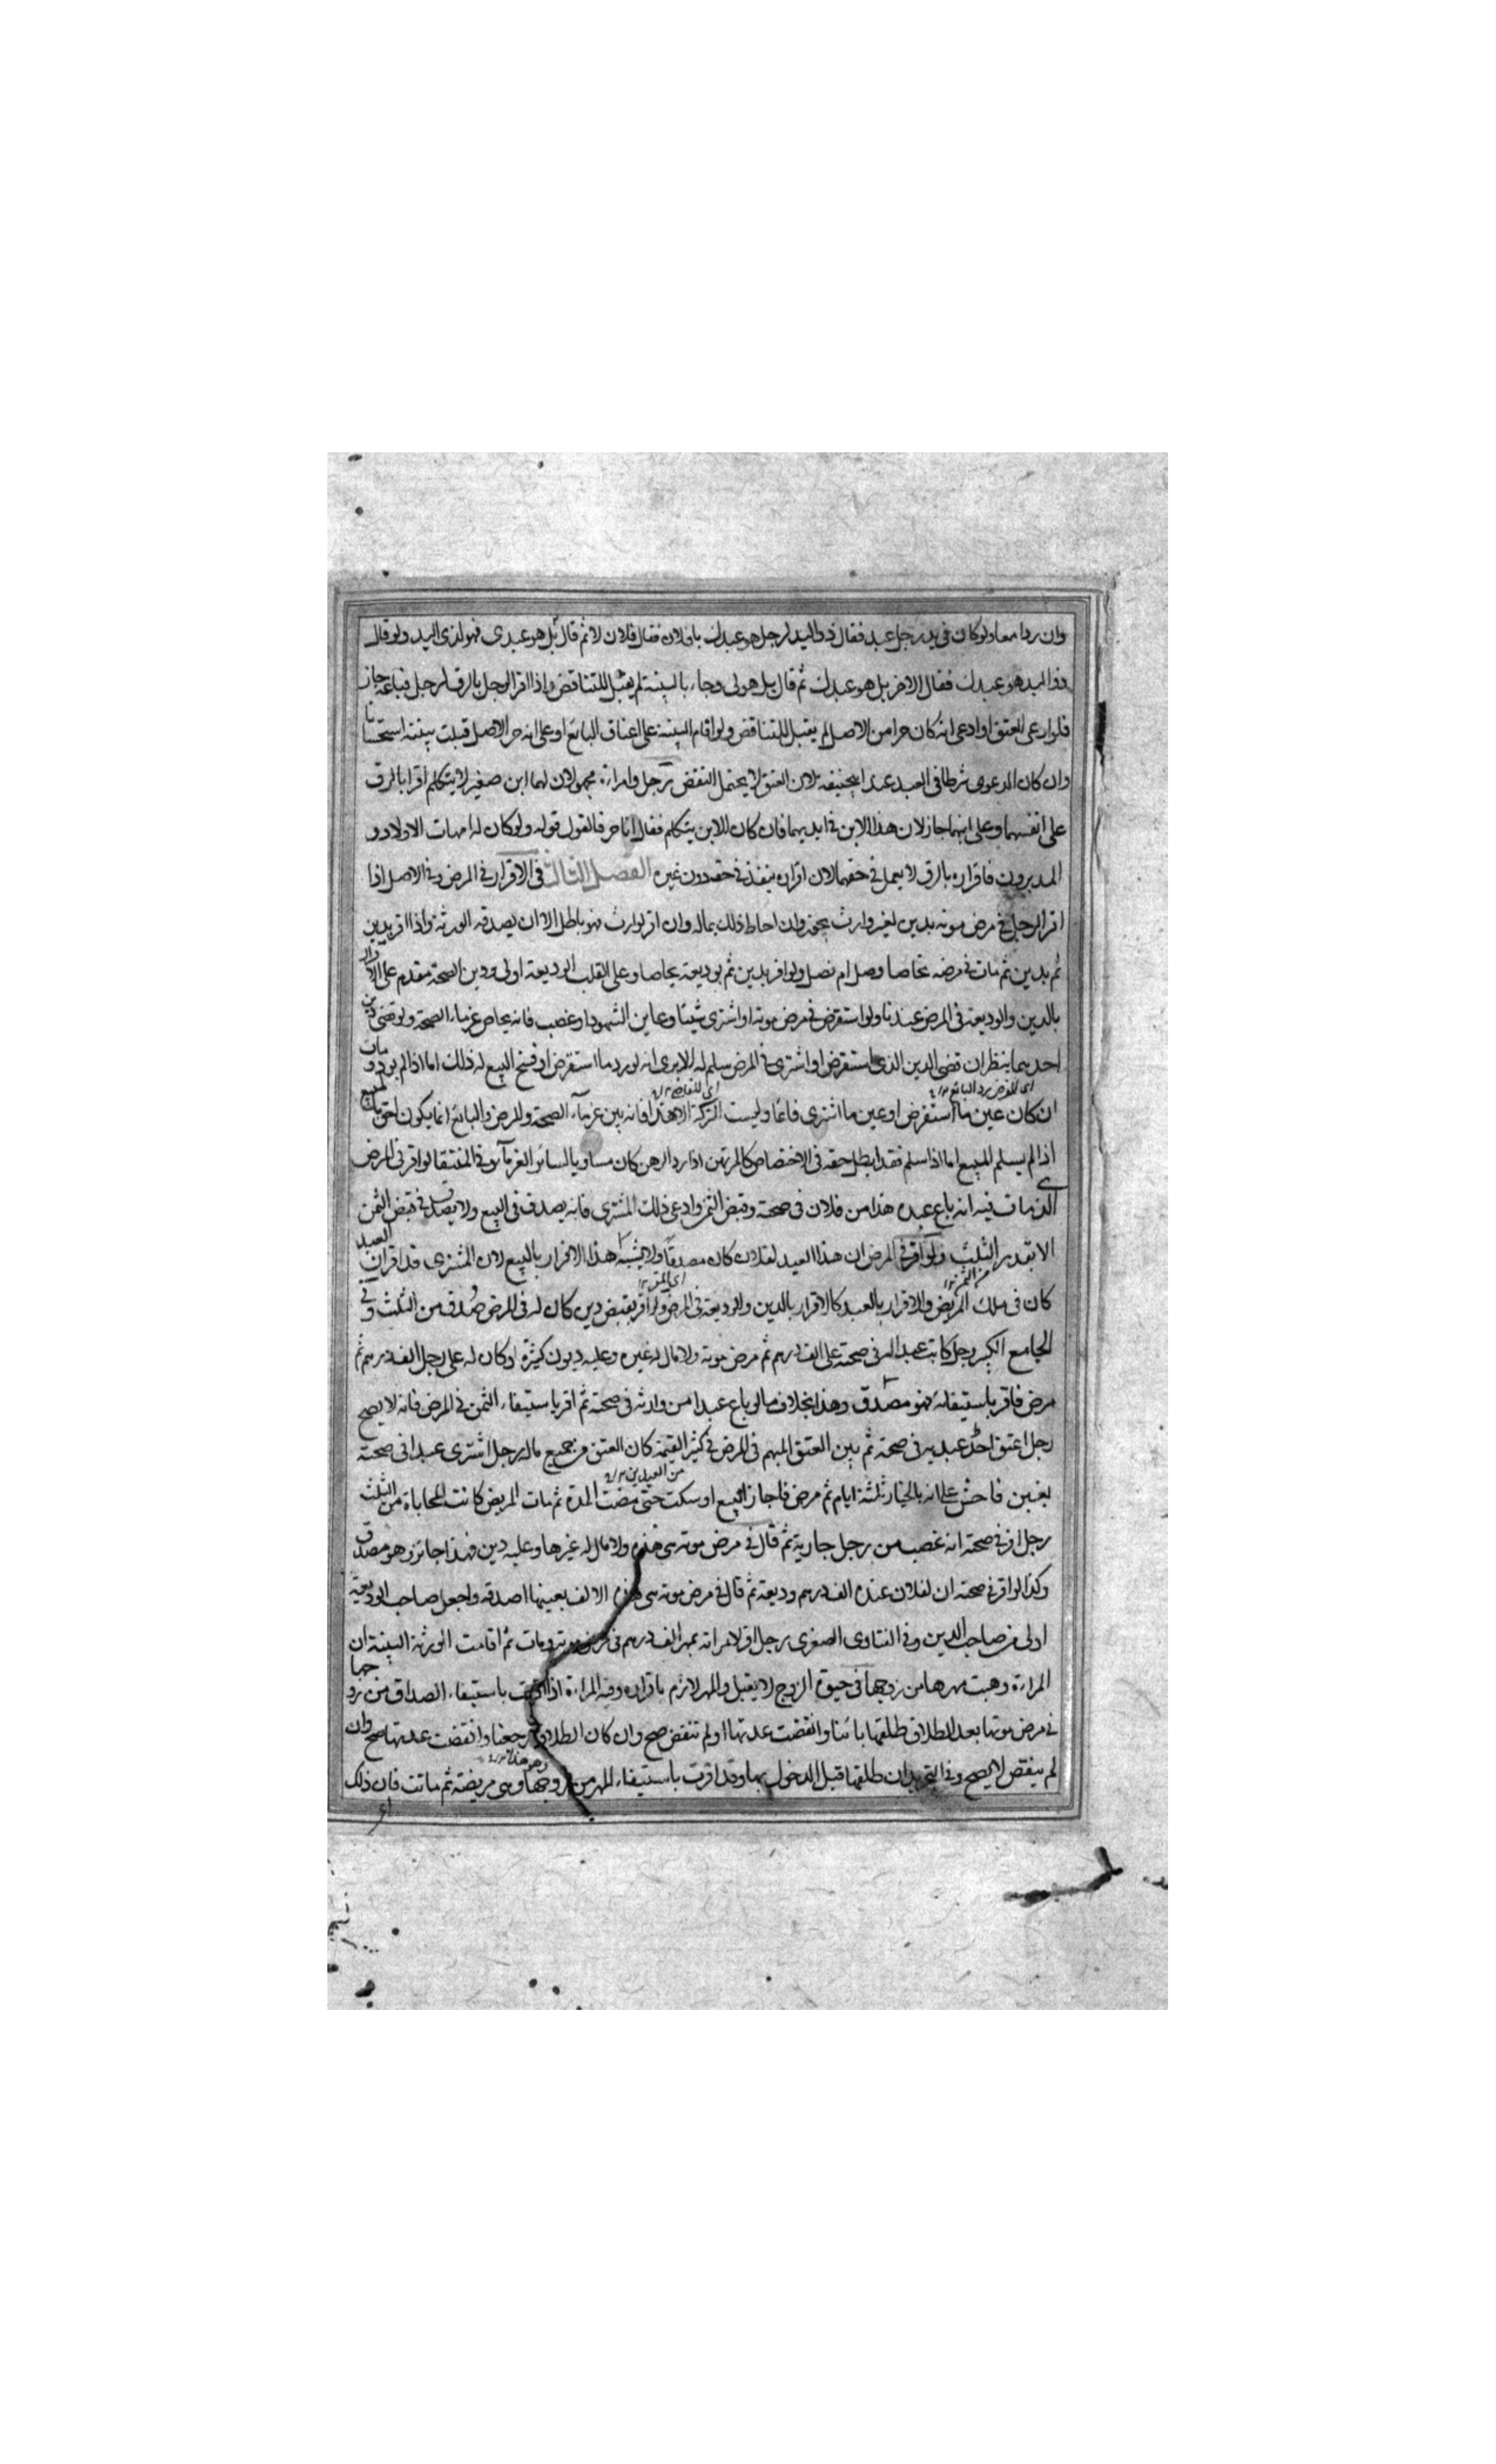 وان ردا معا ولو كان في يد رجل عبد فقال ذو اليد لرجل هو عبدك يا فلان فقال فلان لا ثم قال بل هو عبدي فهو لذي اليد ولو قال
ذو اليد هو عبدك فقال الاخر بل هو عبدك ثم قال بل هو لي وجاء بالبينة لم يقبل للتناقض واذا اقر الرجل بالرق لرجل فباعه جاز
فلو ادعى العتق او ادعى انه كان حرا من الاصل لم يقبل للتناقض ولو اقام البينة على اعتاق البائع او على انه حر الاصل قبلت بينته استحسانا
وان كان الدعوى شرطا في العبد عند ابيحنيفه لان العتق لا يحتمل النقض رجل وامراءة مجهولان لهما ابن صغير لا يتكلم اقرا بالرق
على انفسهما وعلى ابنهما جاز لان هذا الابن في ايديهما فان كان للابن يتكلم فقال انا حر فالقول قوله ولو كان له امهات الاولاد و
المدبرون فاقراره بالرق لا يعمل في حقهما لان اقراره ينفذ في حقه دون غيره الفصل الثالث في الاقرار في المرض وفي الاصل اذا
اقر الرجل في مرض موته بدين لغير وارث يجوز وان احاط ذلك بماله وان اقر لوارث فهو باطل الا ان يصدقه الورثة واذا اقر بدين
ثم بدين ثم مات في مرضه تحاصا وصل ام فصل ولو اقر بدين ثم بوديعة يحاصا وعلى القلب الوديعة اولى ودين الصحة مقدم على الاقرار
بالدين والوديعة في المرض عندنا ولو استقرض في مرض موته او اشترى شيئا وعاين الشهود او غصب فانه يحاص غرماء الصحة ولو قضى دين
احدهما ينظر ان قضى الدين الذي استقرض او اشترى في المرض سلم له الا يرى انه لو رد ما استقرض او فسخ البيع له ذلك اما اذا لم يرد ومات
ان كان عين ما استقرض او عين ما اشترى قائما وليست التركة الا هذا فانه بين غرماء الصحة والمرض والبائع انما يكون احق بالمبيع
اذا لم يسلم المبيع اما اذا سلم فقد ابطل حقه في الاختصاص كالمرتهن اذا رد الرهن كان مساويا لسائر الغرماء وفي المنتقى لو اقر في المرض
الذي مات فيه انه باع عبده هذا من فلان في صحته وقبض الثمن وادعى ذلك المشتري فانه يصدق في البيع ولا يصدق في قبض الثمن
الا بقدر الثلث ولو اقر في المرض ان هذا العبد لفلان كان مصدقا ولا يشبه هذا الاقرار بالبيع لان المشتري قد اقر ان العبد
كان في ملك المريض والاقرار بالعبد كالاقرار بالدين والوديعة في المرض ولو اقر بقبض دين كان له في المرض صدق من الثلث وفي
الجامع الكبير رجل كاتب عبدا له في صحته على الف درهم ثم مرض موته ولا مال له غيره وعليه ديون كثيرة او كان له على رجل الف درهم ثم
مرض فاقر باستيفائه فهو مصدق وهذا بخلاف ما لو باع عبدا من وارثه في صحته ثم اقر باستيفاء الثمن في المرض فانه لا يصح
رجل اعتق احد عبديه في صحته ثم بين العتق المبهم في المرض في كثير القيمة كان العتق من جميع ماله رجل اشترى عبدا في صحته
بغبن فاحش على انه بالخيار ثلثة ايام ثم مرض فاجاز البيع او سكت حتى مضت المدة ثم مات المريض كانت المحاباة من الثلث
رجل اقر في صحته انه غصب من رجل جارية ثم قال في مرض موته هي هذه ولا مال له غيرها وعليه دين فهذا جائز وهو مصدق
وكذا لو اقر في صحته ان لفلان عنده الف درهم وديعة ثم قال في مرض موته هي هذه الالف بعينها اصدقه واجعل صاحب الوديعة
اولى من صاحب الدين وفي الفتاوى الصغرى رجل اقر لامراته بمهر الف درهم في مرض موته ومات ثم اقامت الورثة البينة ان
المراءة وهبت مهرها من زوجها في حيوة الزوج لا يقبل والمهر لازم باقراره وفيه المراءة اذا اقرت باستيفاء الصداق من زوجها
في مرض موتها بعد الطلاق طلقها بائنا وانقضت عدتها او لم تنقض صح وان كان الطلاق رجعيا وانقضت عدتها صح وان
لم ينقض لا يصح وفي التجريد ان طلقها قبل الدخول بها وقد اقرت باستيفاء المهر من زوجها وهي مريضة ثم ماتت فان ذلك